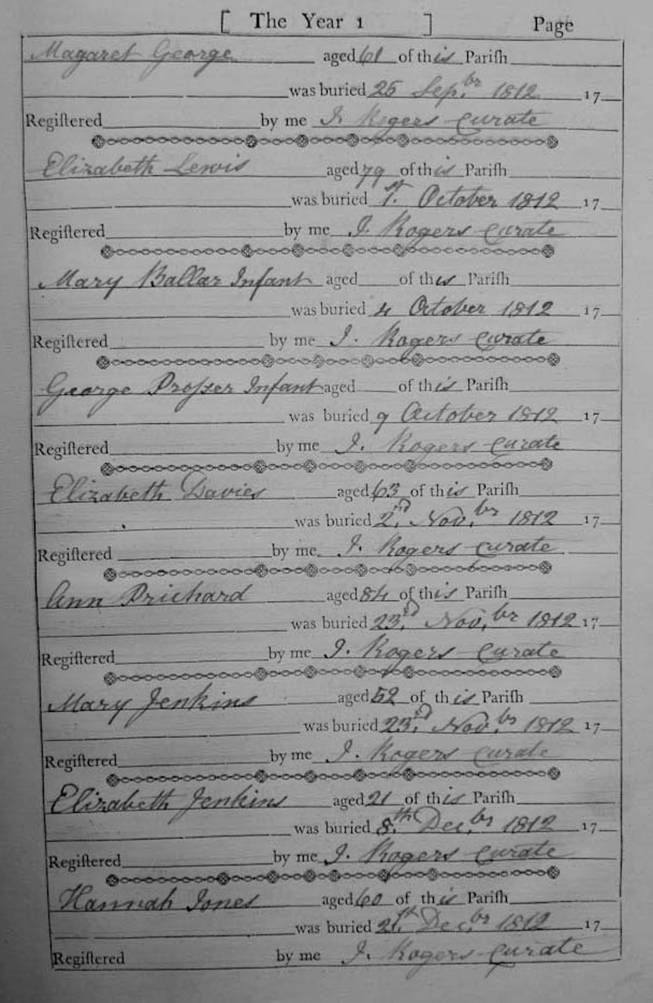 [ The Year 1 ] Page
Magaret George aged 61 of this Pariſh
was buried 25 Sep.br 1812 17
Regiſtered by me J. Rogers Curate
Elizabeth Lewis aged 79 of this Pariſh
was buried 1st. October 1812 17
Regiſtered by me J. Rogers Curate
Mary Ballar Infant aged of this Pariſh
was buried 4 October 1812 17
Regiſtered by me J. Rogers Curate
George Proſser Infant aged of this Pariſh
was buried 9 October 1812 17
Regiſtered by me J. Rogers Curate
Elizabeth Davies aged 63 of this Pariſh
was buried 2d. Nov.br 1812 17
Regiſtered by me J. Rogers Curate
Ann Prichard aged 84 of this Pariſh
was buried 23d. Nov.br 1812 17
Regiſtered by me J. Rogers Curate
Mary Jenkins aged 52 of this Pariſh
was buried 23d. Nov.br 1812 17
Regiſtered by me J. Rogers Curate
Elizabeth Jenkins aged 21 of this Pariſh
was buried 8th. Dec.br 1812 17
Regiſtered by me J. Rogers Curate
Hannah Jones aged 60 of this Pariſh
was buried 21st Dec.br 1812 17
Regiſtered by me J. Rogers Curate